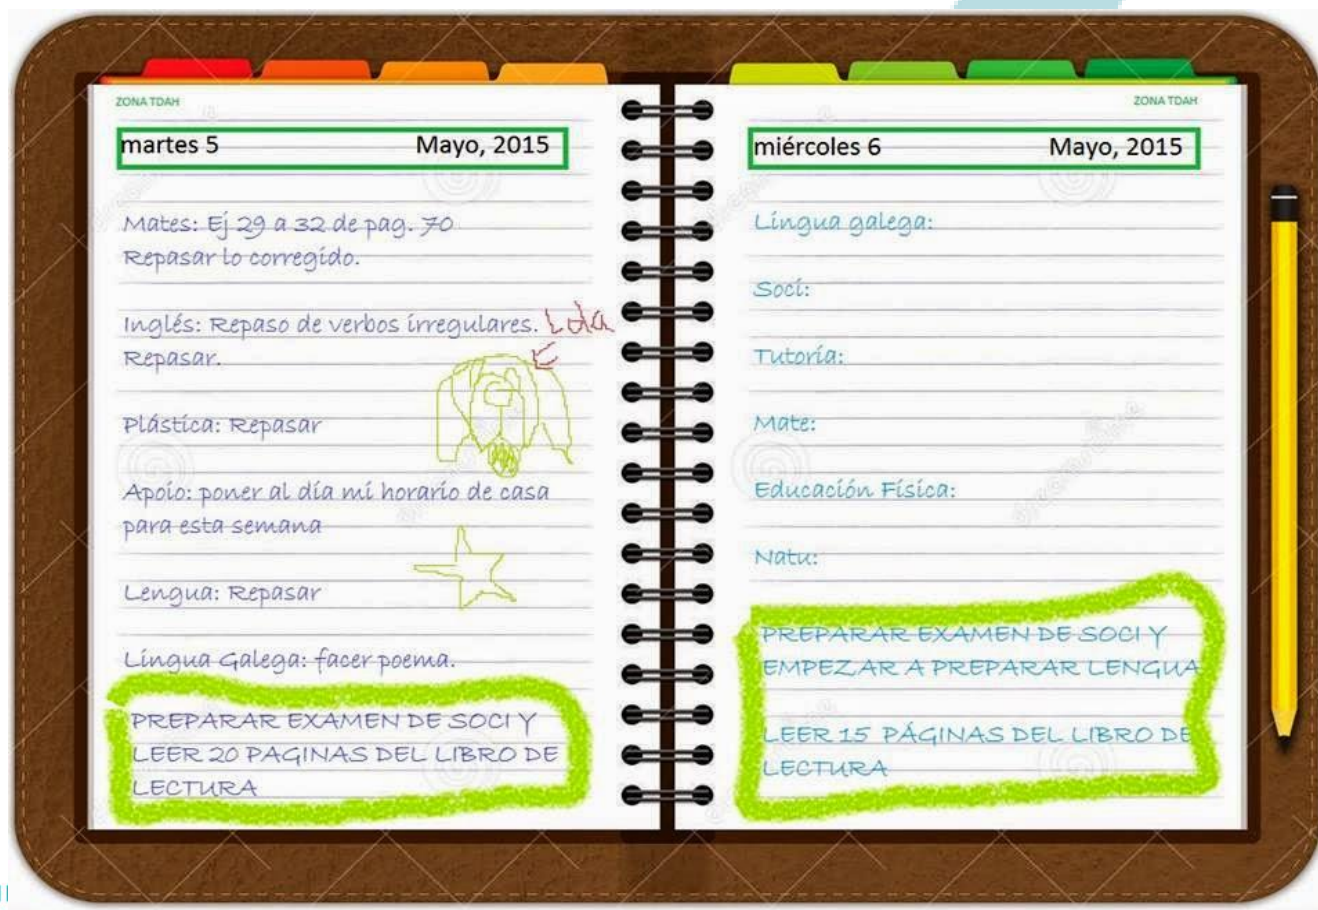 ZONA TDAH
martes 5 Mayo, 2015
Mates: Ej 29 a 32 de pag. 70
Repasar lo corregido.
Inglés: Repaso de verbos irregulares. Lola
Repasar.
Plástica: Repasar
Apoio: poner al día mi horario de casa
para esta semana
Lengua: Repasar
Lingua Galega: facer poema.
PREPARAR EXAMEN DE SOCI Y
LEER 20 PAGINAS DEL LIBRO DE
LECTURA
ZONA TDAH
miércoles 6 Mayo, 2015
Lingua galega:
Soci:
Tutoría:
Mate:
Educación Física:
Natu:
PREPARAR EXAMEN DE SOCI Y
EMPEZAR A PREPARAR LENGUA
LEER 15 PÁGINAS DEL LIBRO DE
LECTURA